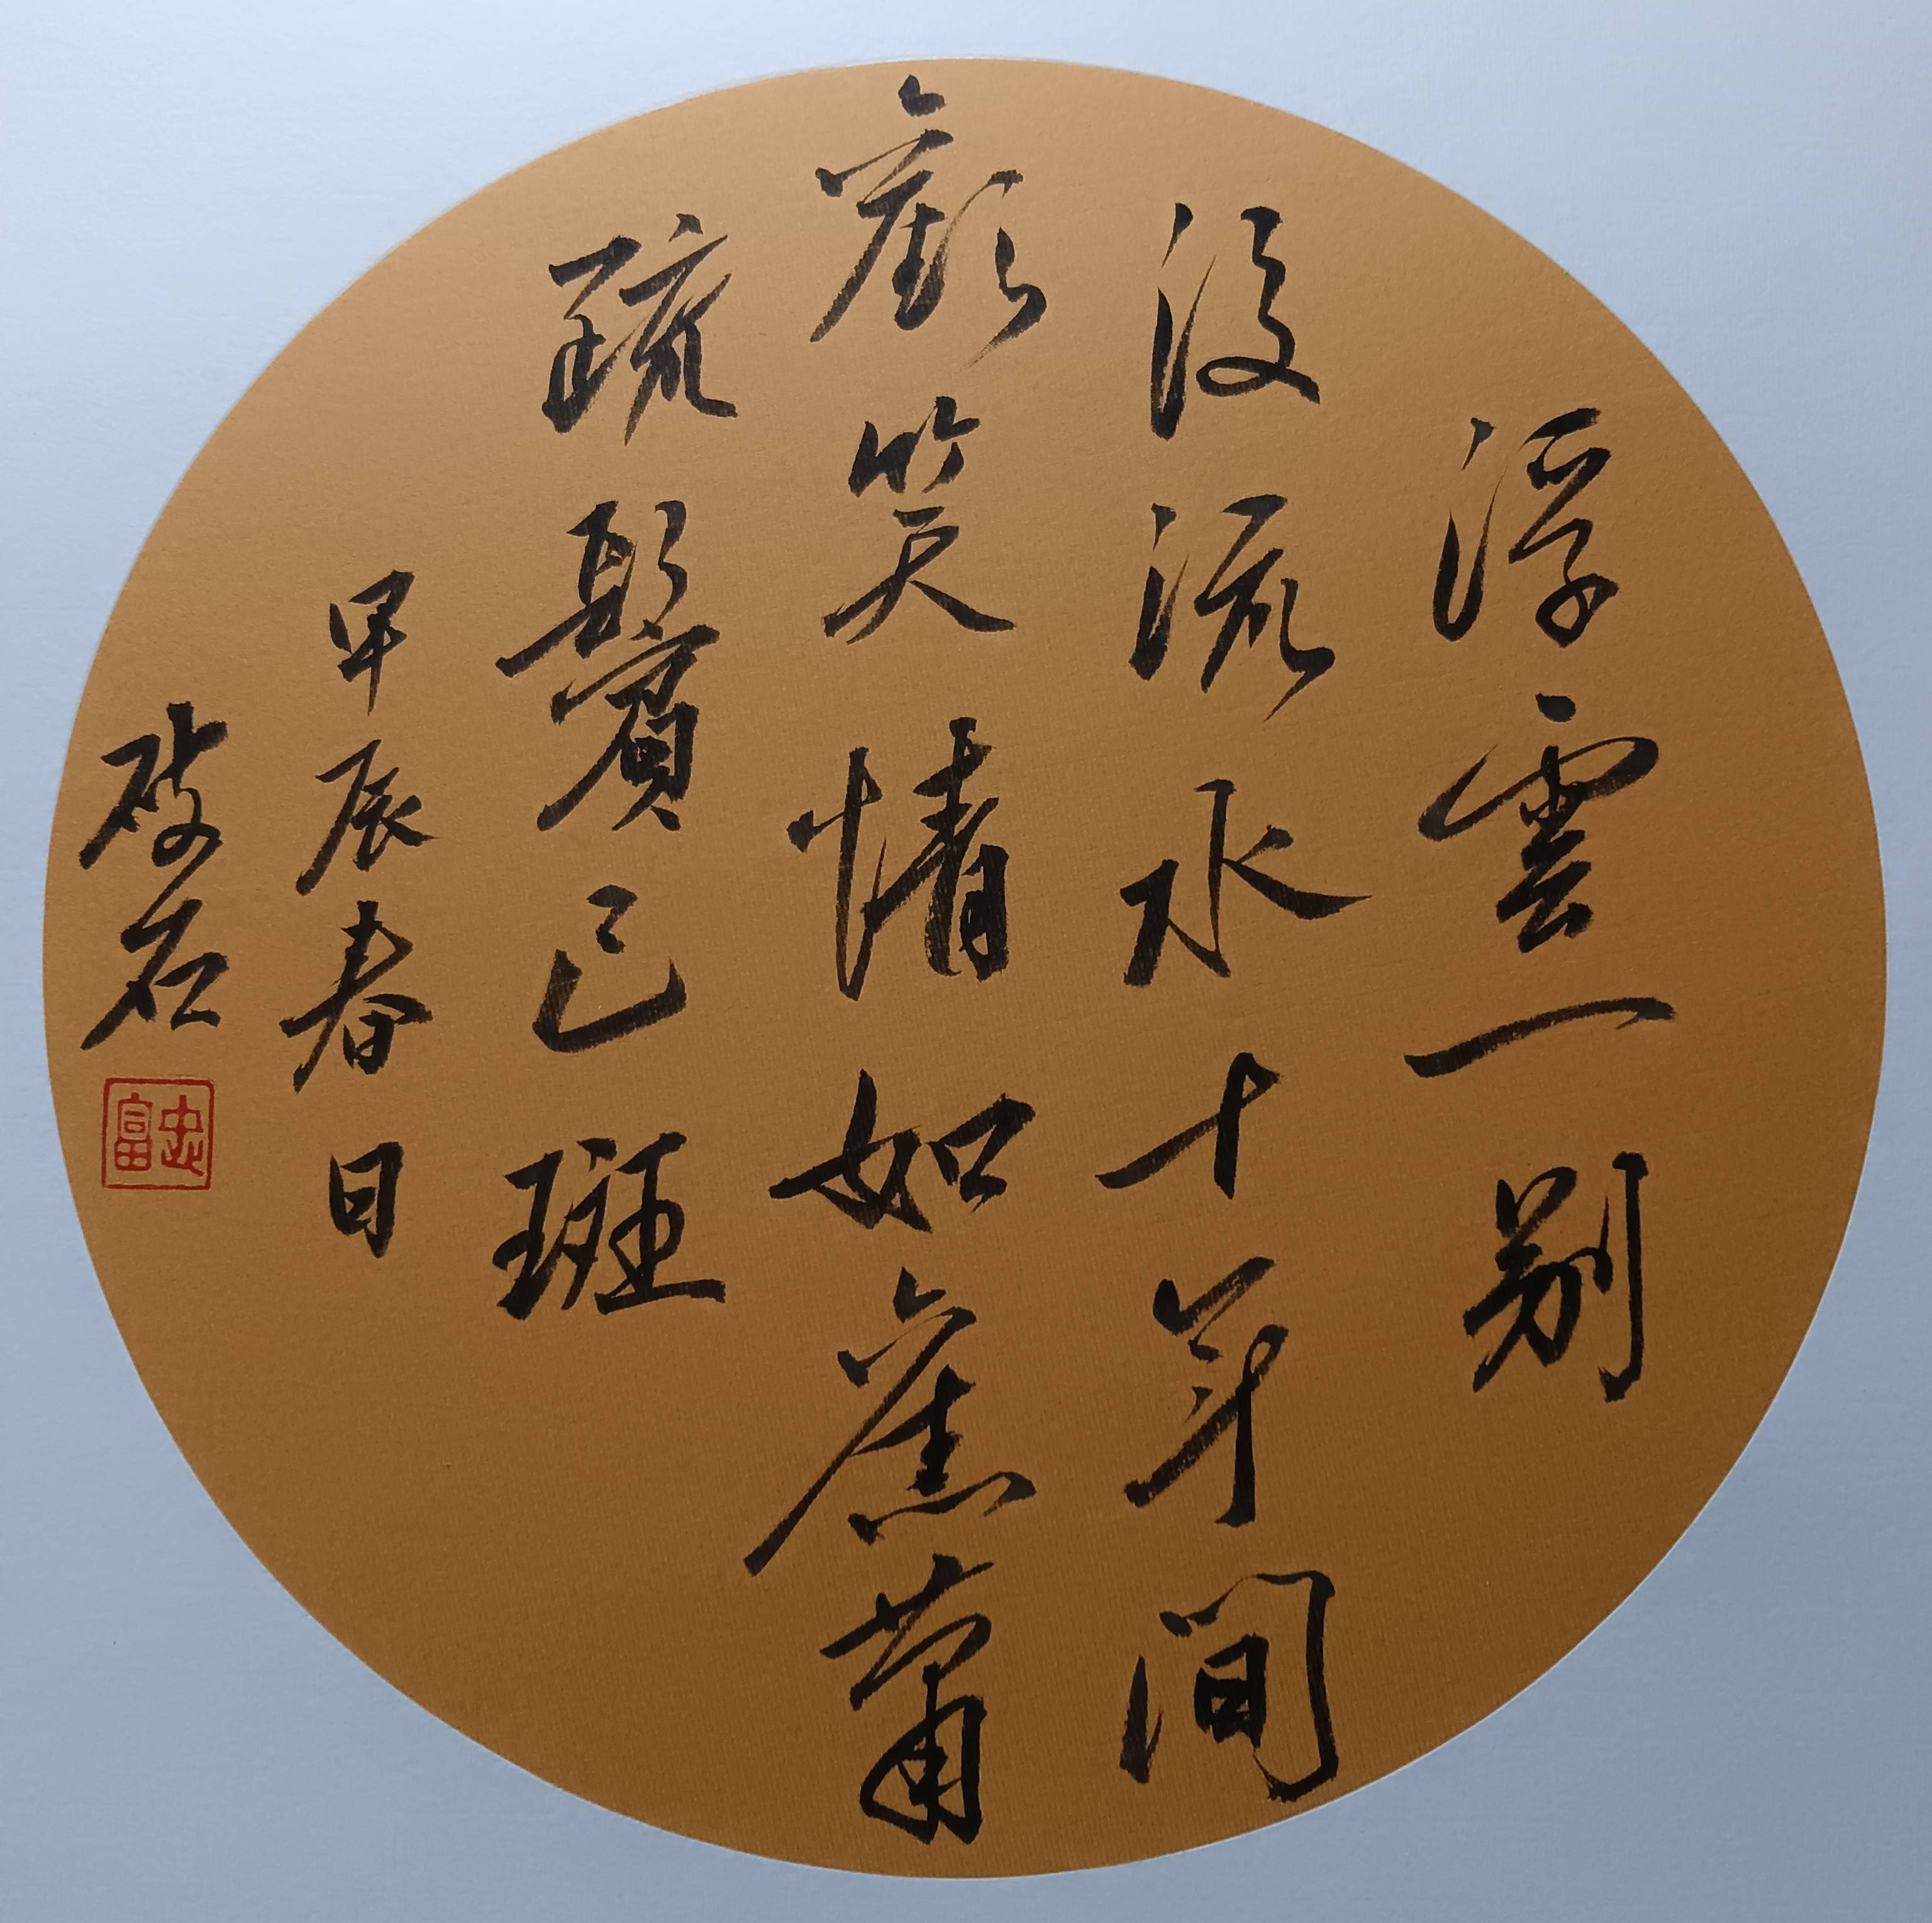 浮雲一别
後流水十年間
歡笑情如舊蕭
疏鬢已斑
甲辰春日
石
忠富